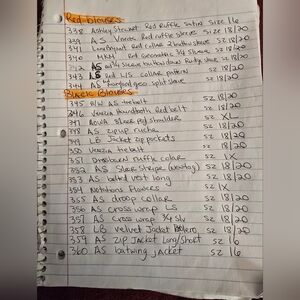 Red Blouses
338 Ashley Stewart Red Ruffle Satin Size 16
339 AS Red ruffle sleeves size 18/20
341 Red collar 2 button sleeve sz 18/20
340 MKM Red geometric 3/4 sleeve sz 18/20
AS sleeve sz 18/20
343 LB Red L/S collar pattern sz 18/20
344 AS split sleeve sz 18/20
Black Blouses
345 B/W AS tie belt sz 18/20
346 Venezia Houndtooth Red belt sz 18/20
347 AQUA Silver peg shoulder sz XL
348 AS zip up ruche sz 18/20
349 LB Jacket zip pockets sz 18/20
350 Venezia tie belt sz 18/20
351 Dressbarn Ruffle collar sz 1X
352 AS Silver stripe sz 18/20
353 AS belted vest long sz 18/20
354 Notations flowers sz 1X
355 AS droop collar sz 18/20
356 AS Cross wrap LS sz 18/20
357 AS Cross wrap 3/4 slv sz 18/20
358 LB Velvet Jacket Bolero sz 18/20
359 AS Zip Jacket Long/Short sz 16
360 AS batwing jacket sz 16